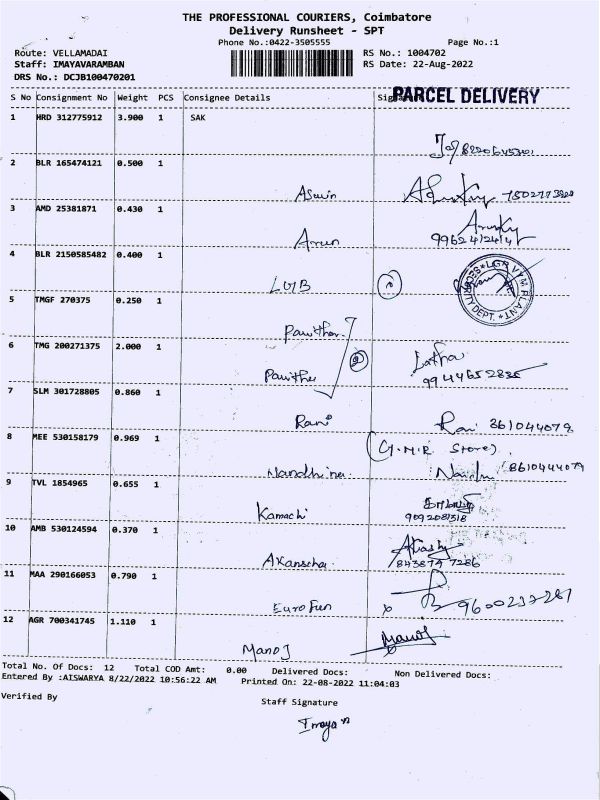 THE PROFESSIONAL COURIERS, Coimbatore
Delivery Runsheet - SPT
Phone No.:0422-3505555 Page No.:1
Route: VELLAMADAI RS No.: 1004702
Staff: IMAYAVARAMBAN RS Date: 22-Aug-2022
DRS No.: DCJB100470201
S No Consignment No Weight PCS Consignee Details PARCEL DELIVERY
1 HRD 312775912 3.900 1 SAK
2 BLR 165474121 0.500 1
Aswin
3 AMD 25381871 0.430 1
Arrun
4 BLR 2150585482 0.400 1
LGB
SECURITY DEPT.
5 TMGF 270375 0.250 1
Pavithra
6 TMG 200271375 2.000 1 Latha
Pavithra 9944652835
7 SLM 301728805 0.860 1
Rani Rani 361044079
8 MEE 530158179 0.969 1 (G.M.R Store)
Nandhina 8610444079
9 TVL 1854965 0.655 1
Kamachi 9092081318
10 AMB 530124594 0.370 1
Akanscha 843874 7286
11 MAA 290166053 0.790 1
Eurofun
12 AGR 700341745 1.110 1
Manoj Manoj
Total No. Of Docs: 12 Total COD Amt: 0.00 Delivered Docs: Non Delivered Docs:
Entered By :AISWARYA 8/22/2022 10:56:22 AM Printed On: 22-08-2022 11:04:03
Verified By Staff Signature
Imaya